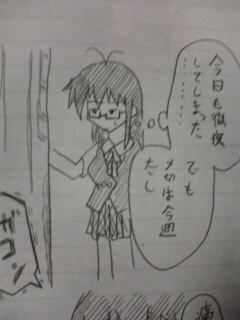 今日も徹夜
してしまった
………
でも
〆切は今週
だし
ガコン
痛